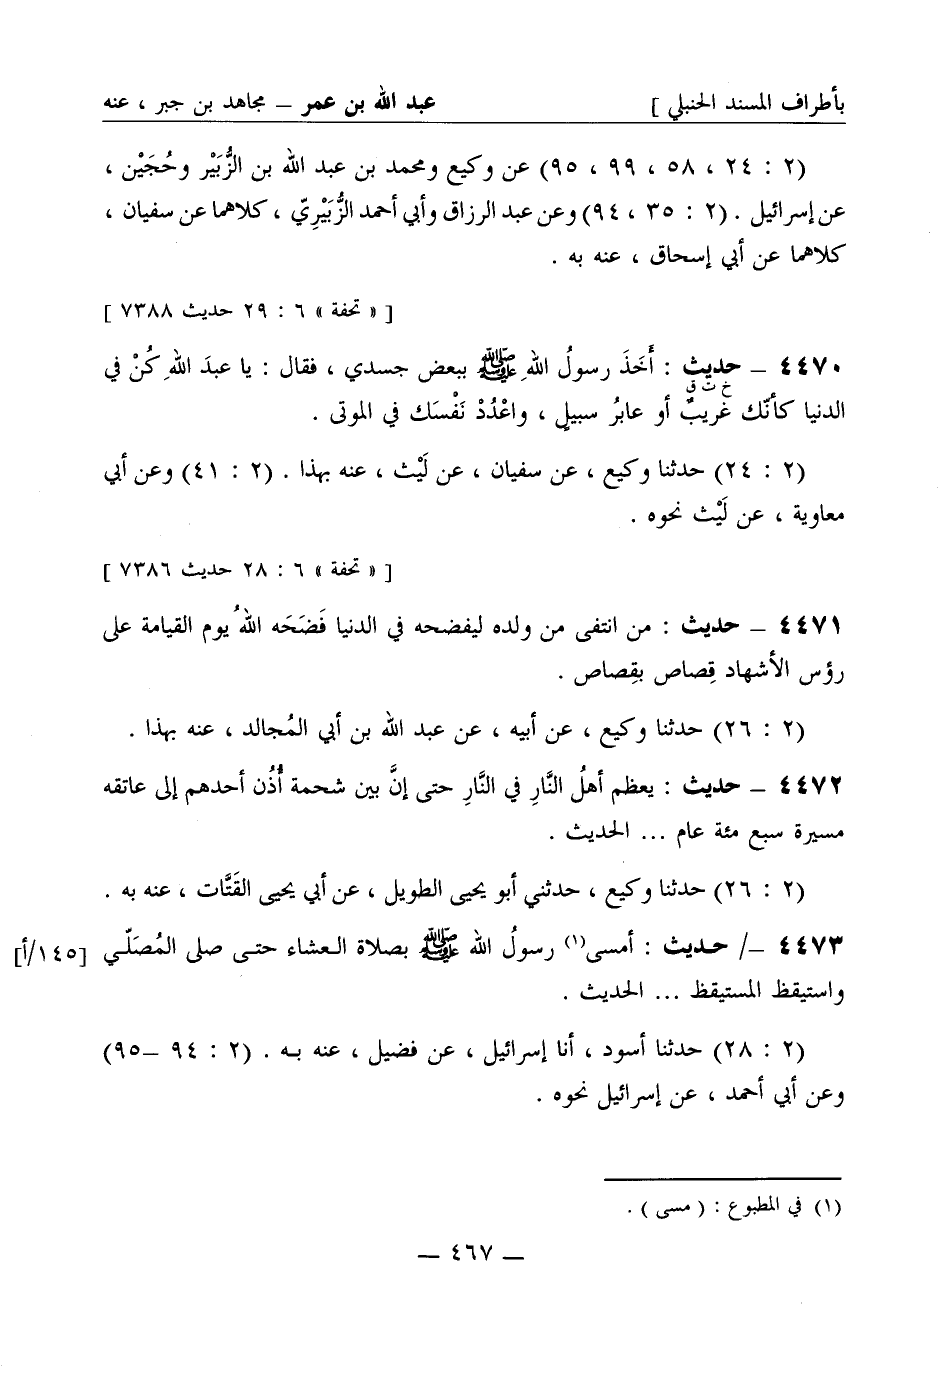 بأطراف المسند الحنبلي ] عبد الله بن عمر – مجاهد بن جبر ، عنه
(٢ : ٢٤ ، ٥٨ ، ٩٩ ، ٩٥) عن وكيع ومحمد بن عبد الله بن الزُّبَيْر وحُجَيْن ،
عن إسرائيل . (٢ : ٣٥ ، ٩٤) وعن عبد الرزاق وأبي أحمد الزُّبَيْرِيّ ، كلاهما عن سفيان ،
كلاهما عن أبي إسحاق ، عنه به .
[ « تحفة » ٦ : ٢٩ حديث ٧٣٨٨ ]
٤٤٧٠ – حديث : أَخَذَ رسولُ اللهِ ﷺ ببعض جسدي ، فقال : يا عبدَ اللهِ كُنْ في
خ ت ق
الدنيا كأنّك غريبٌ أو عابرُ سبيلٍ ، واعْدُدْ نَفْسَك في الموتى .
(٢ : ٢٤) حدثنا وكيع ، عن سفيان ، عن لَيْث ، عنه بهذا . (٢ : ٤١) وعن أبي
معاوية ، عن لَيْث نحوه .
[ « تحفة » ٦ : ٢٨ حديث ٧٣٨٦ ]
٤٤٧١ – حديث : من انتفى من ولده ليفضحه في الدنيا فَضَحَه اللهُ يوم القيامة على
رؤس الأشهاد قِصاص بقِصاص .
(٢ : ٢٦) حدثنا وكيع ، عن أبيه ، عن عبد الله بن أبي المُجالد ، عنه بهذا .
٤٤٧٢ – حديث : يعظم أهلُ النَّارِ في النَّارِ حتى إنَّ بين شحمة أُذُن أحدهم إلى عاتقه
مسيرة سبع مئة عام ... الحديث .
(٢ : ٢٦) حدثنا وكيع ، حدثني أبو يحيى الطويل ، عن أبي يحيى القَتَّات ، عنه به .
٤٤٧٣ –/ حديث : أمسى(١) رسولُ الله ﷺ بصلاة العشاء حتى صلى المُصَلّي [١٤٥/أ]
واستيقظ المستيقظ ... الحديث .
(٢ : ٢٨) حدثنا أسود ، أنا إسرائيل ، عن فضيل ، عنه به . (٢ : ٩٤ –٩٥)
وعن أبي أحمد ، عن إسرائيل نحوه .
(١) في المطبوع : ( مسى ) .
– ٤٦٧ –